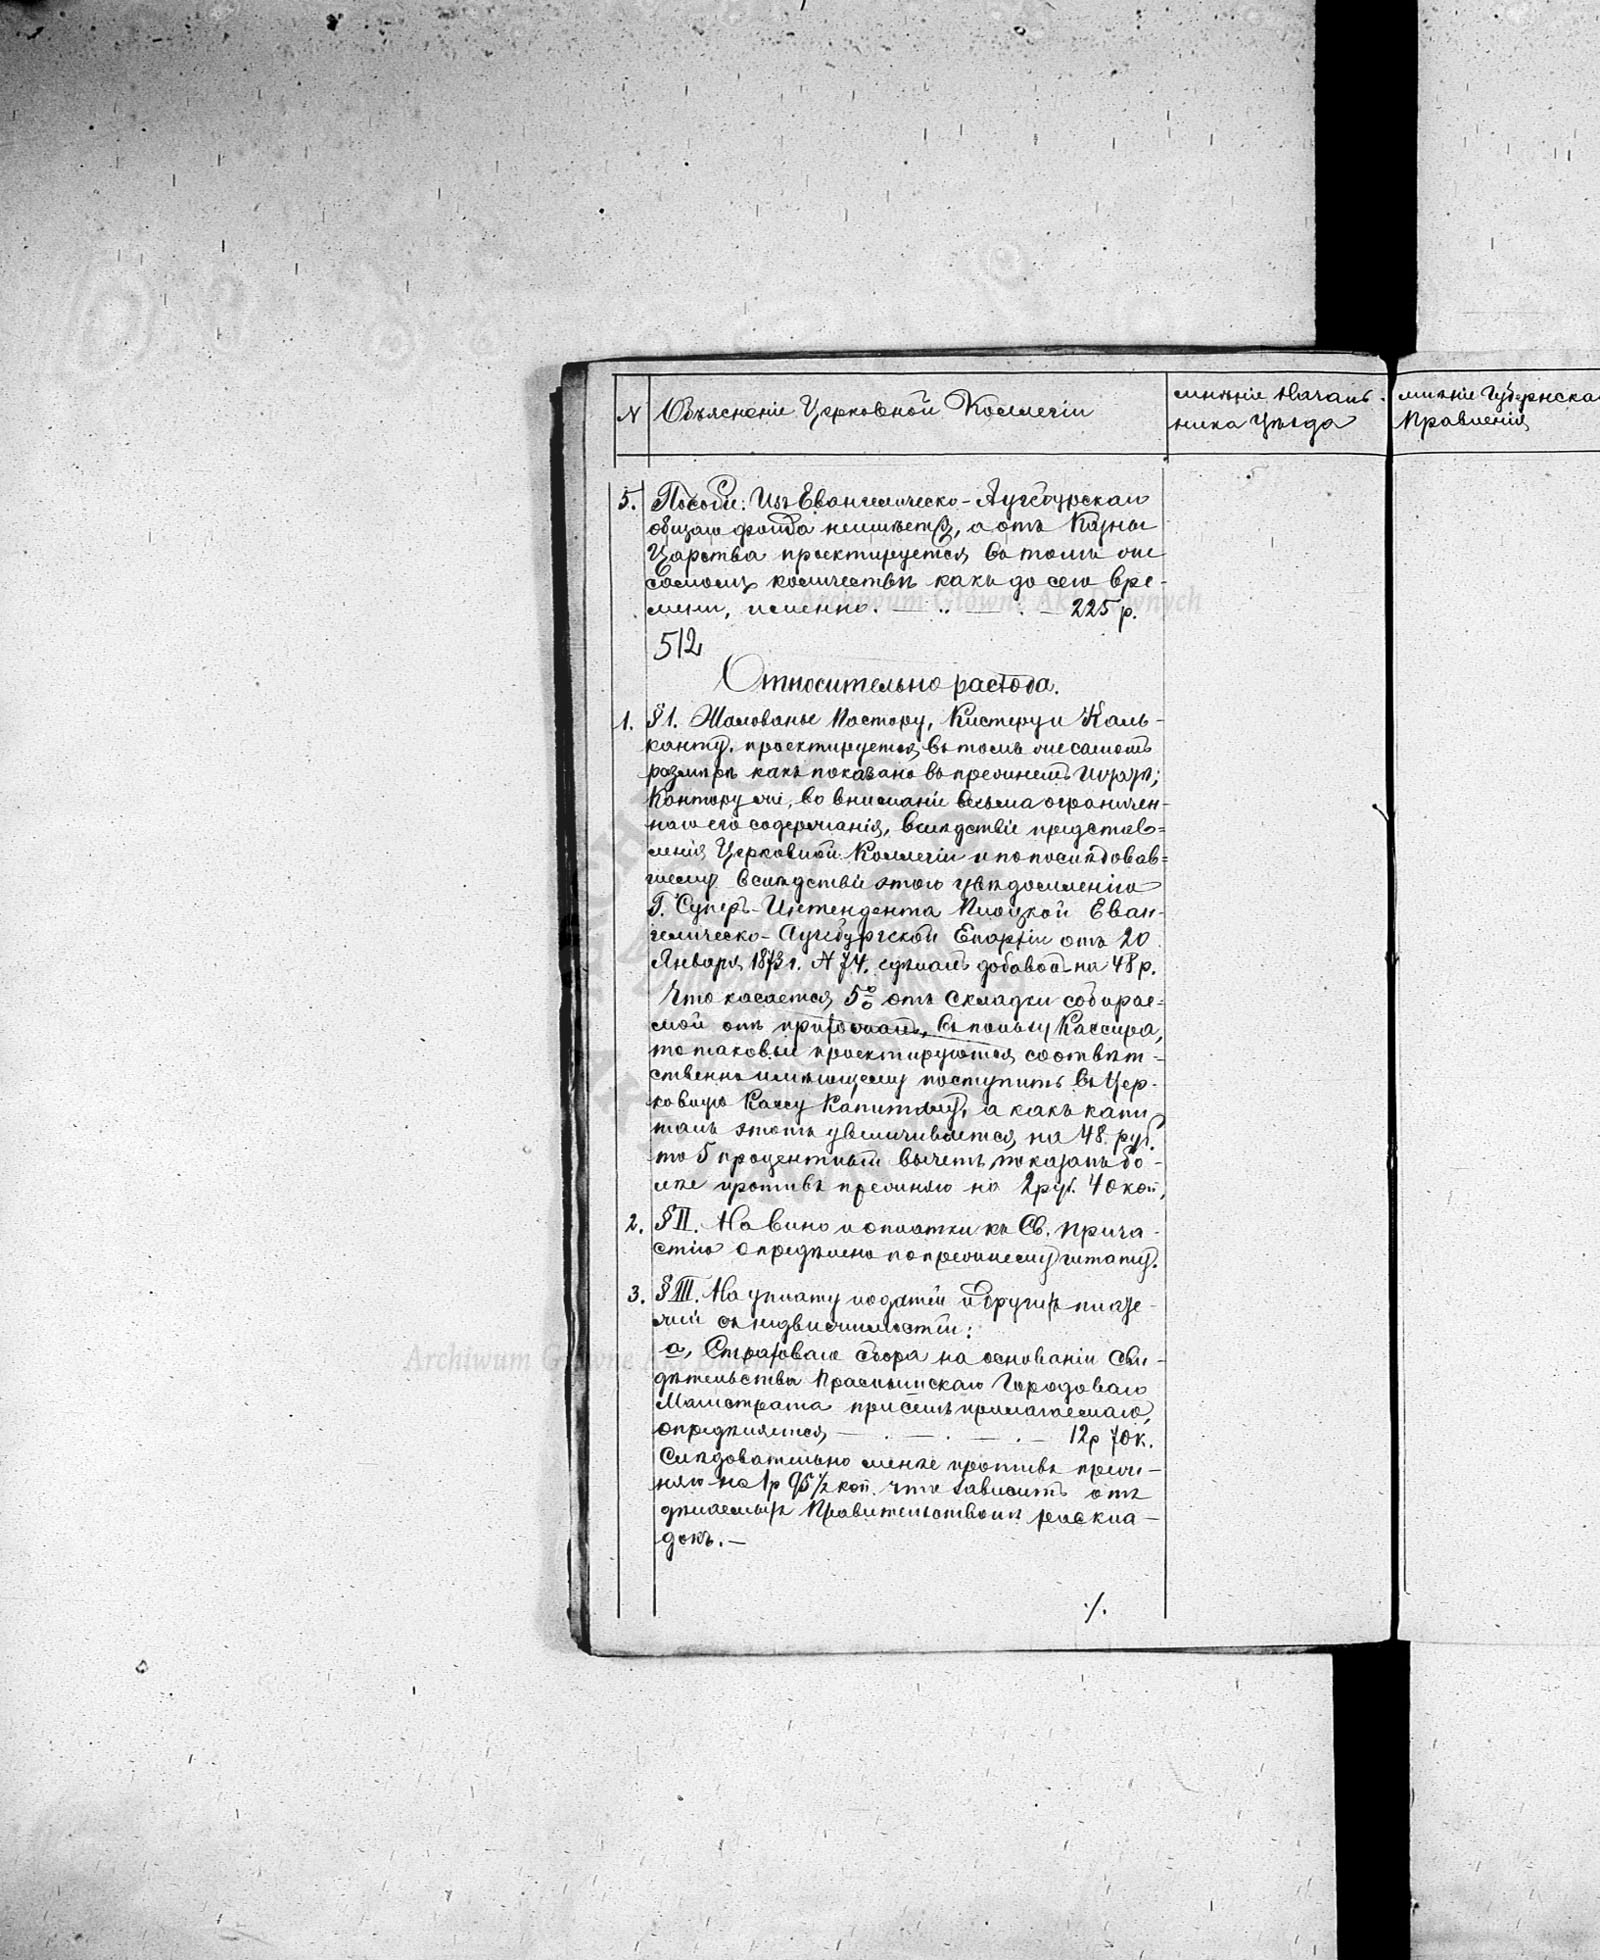 N Объясненіе Церковной Коллегіи
мнѣніе Началь-
ника Уѣзда
мнѣніе Губернска
Правленія
5. Пособій: Изъ Евангелическо-Аугсбургскаго
общаго фонда неимѣется, а отъ Казны
Царства проектируется въ томъ же
самомъ количествѣ какъ до сего вре-
мени, именно. — „ — . — 225 р.
512
Относительно расхода.
1. § 1. Жалованье Пастору, Кистеру и Каль-
канту, проектируется въ томъ же самомъ
размѣрѣ какъ показано въ прежнемъ штатѣ;
Кантору же, во вниманіи весьма ограничен-
наго его содержанія, вслѣдствіе представ=
ленія Церковной Коллегіи и по послѣдовав=
шему вслѣдствіе этого увѣдомленію
Г. Суперъ-Интендента Плоцкой Еван-
гелическо-Аугсбургской Епархіи отъ 20
Января 1873 г. N 74. сдѣланъ добавокъ на 48 р.
Что касается 5% отъ складки собирае=
мой отъ прихожанъ, въ пользу Кассира,
то таковые проектируются соотвѣт=
ственно имѣющему поступить въ Цер-
ковную Кассу Капиталу, а какъ капи
талъ этотъ увеличивается на 48. руб.
то 5 процентный вычетъ показанъ бо-
лѣе противъ прежняго на 2 руб. 40 коп.
2. § II. На вино и оплатки къ Св. Прича-
стію опредѣлено по прежнему штату.
3. § III. На уплату податей и другихъ плате-
жей съ недвижимостей:
а, Страховаго сбора на основаніи сви-
дѣтельства Праснышскаго Городоваго
Магистрата при семъ прилагаемаго,
опредѣляется — . — . — . — 12 р 70 к.
Слѣдовательно менѣе противъ преж-
няго на 1 р 95 1/2 коп. что зависитъ отъ
дѣлаемыхъ Правительствомъ раскла-
докъ. —
./.
Archiwum Główne Akt Dawnych
Archiwum Główne Akt Dawnych